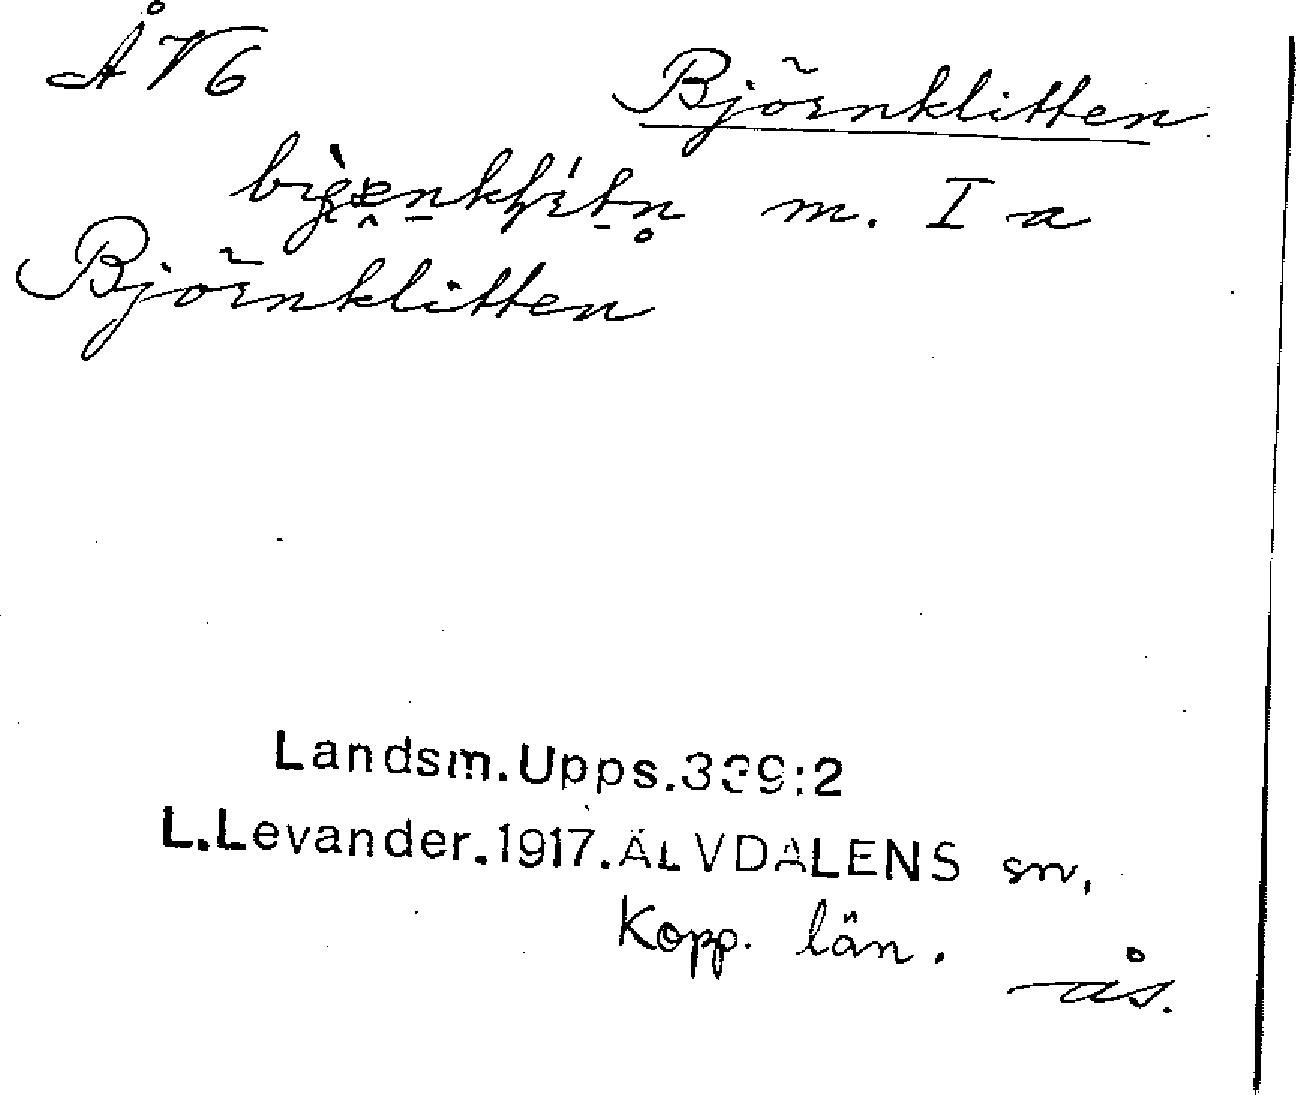 ÅV6
Björnklitten
m. I a
Björnklitten
Landsm.Upps.339:2
L.Levander.1917.ÄLVDALENS sn,
Kopp. län.
ås.